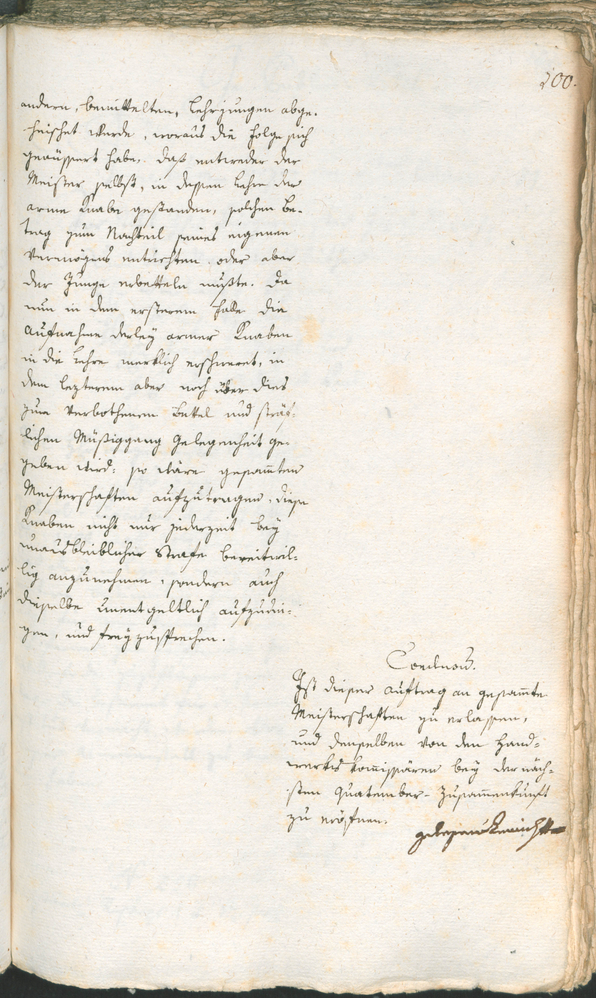 500.
andern, bemittelten, Lehrjungen abge-
heischet werde, woraus die Folge sich
geäussert habe, daß entweder der
Meister selbst, in dessen Lehre der
arme Knabe gestanden, solchen Be-
trag zum Nachteil seines eigenen
Vermögens entrichten, oder aber
der Junge erbetteln mußte. Da
nun in dem ersterem Falle die
Aufnahme derley armer Knaben
in die Lehre merklich erschweret, in
dem lezterem aber noch über dies
zum verbothenem Bettel und sträf-
lichen Müßiggang Gelegenheit ge-
geben wird: so wäre gesamten
Meisterschaften aufzutragen, diese
Knaben nicht nur jederzeit bey
unausbleiblicher Strafe bereitwil-
lig anzunehmen, sondern auch
dieselbe unentgeltlich aufzudin-
gen, und freyzusprechen.
Conclusum.
Ist dieser Auftrag an gesamte
Meisterschaften zu erlassen,
und denselben von den Hand-
werks kommissären bey der näch-
sten Quatember-Zusammenkunft
zu eröfnen.